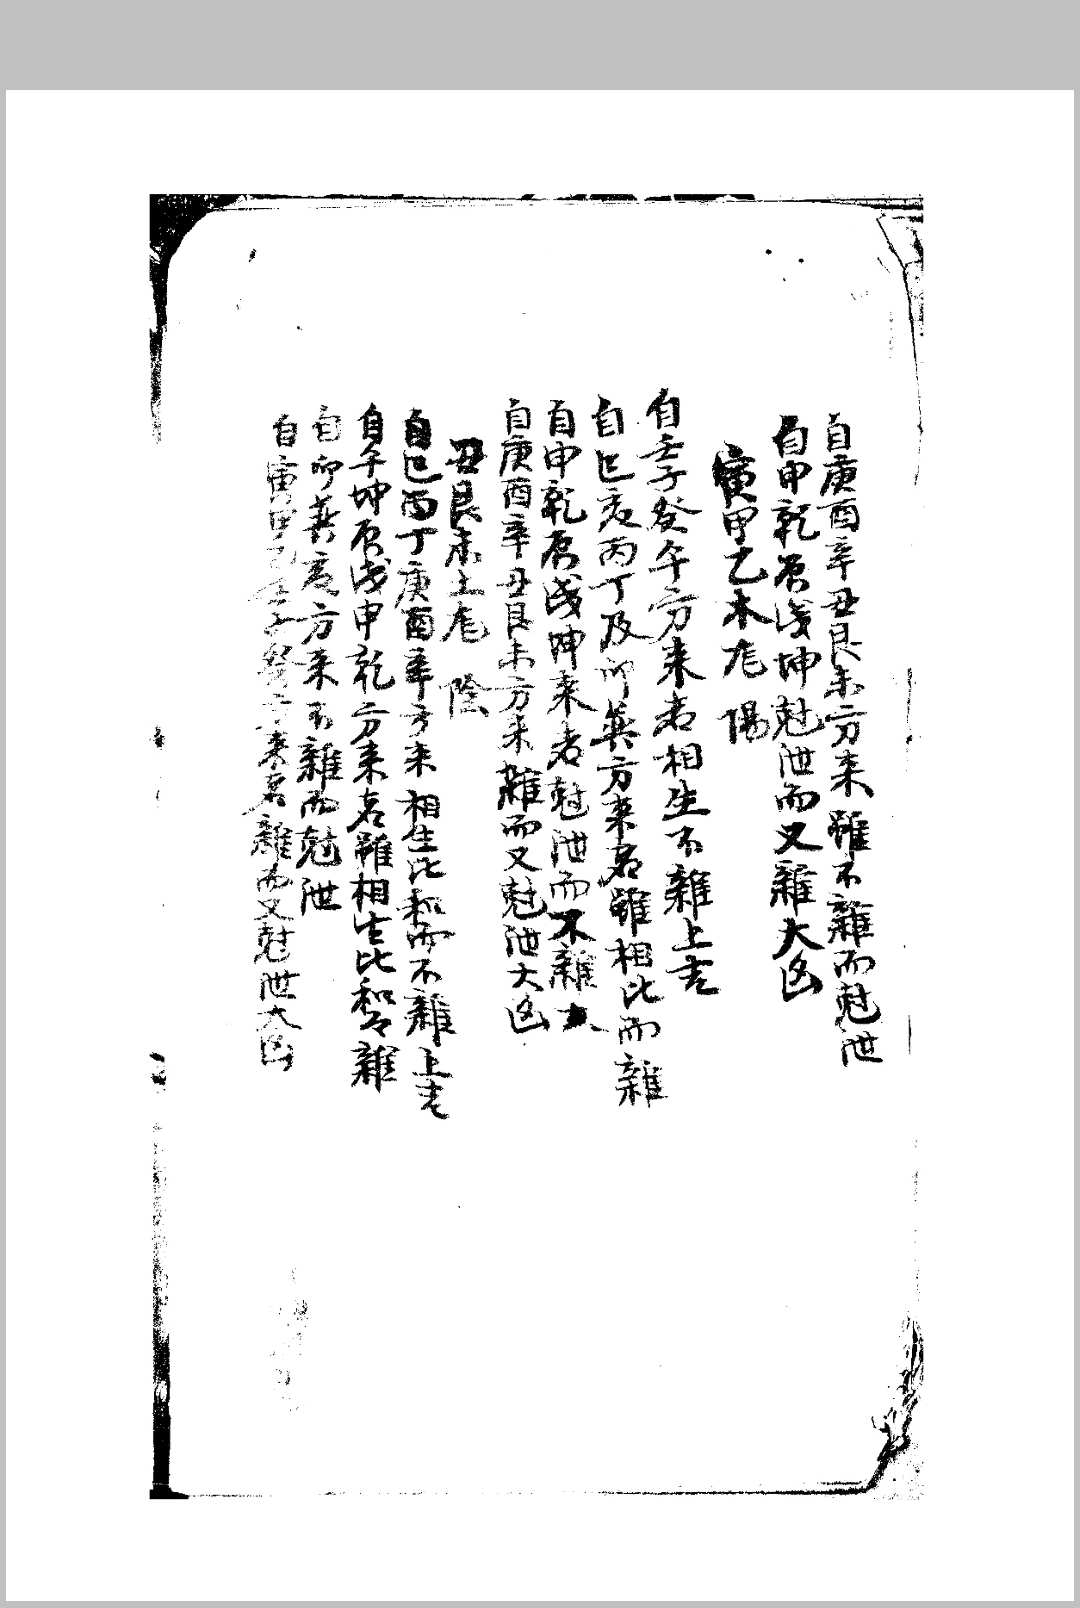 自庚酉辛丑艮未方来雖不雜而尅泄
自申乾辰戌坤尅泄而又雜大凶
寅甲乙木龙陽
自壬子癸午方来者相生不雜上吉
自巳亥丙丁及卯巽方来者雖相比而雜
自申乾辰戌坤来者尅泄而不雜
自庚酉辛丑艮未方来雜而又尅泄大凶
丑艮未土龙陰
自巳丙丁庚酉辛方来相生比和而不雜上吉
自午坤辰戌申乾方来者雖相生比和雜
自卯巽亥方来不雜而尅泄
自寅甲乙壬子癸方来者雜而又尅泄大凶